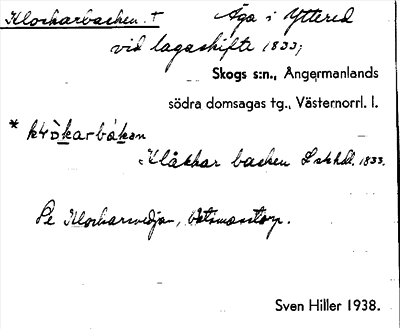 Klockarbacken. † Äga i Yttered
vid lagaskifte 1833;
Skogs s:n., Ångermanlands
södra domsagas tg., Västernorrl. l.
* klòkarbákan
Klåkkar backen L skhdl. 1833.
Se Klockarvedjan, Båtsmanstorp.
Sven Hiller 1938.